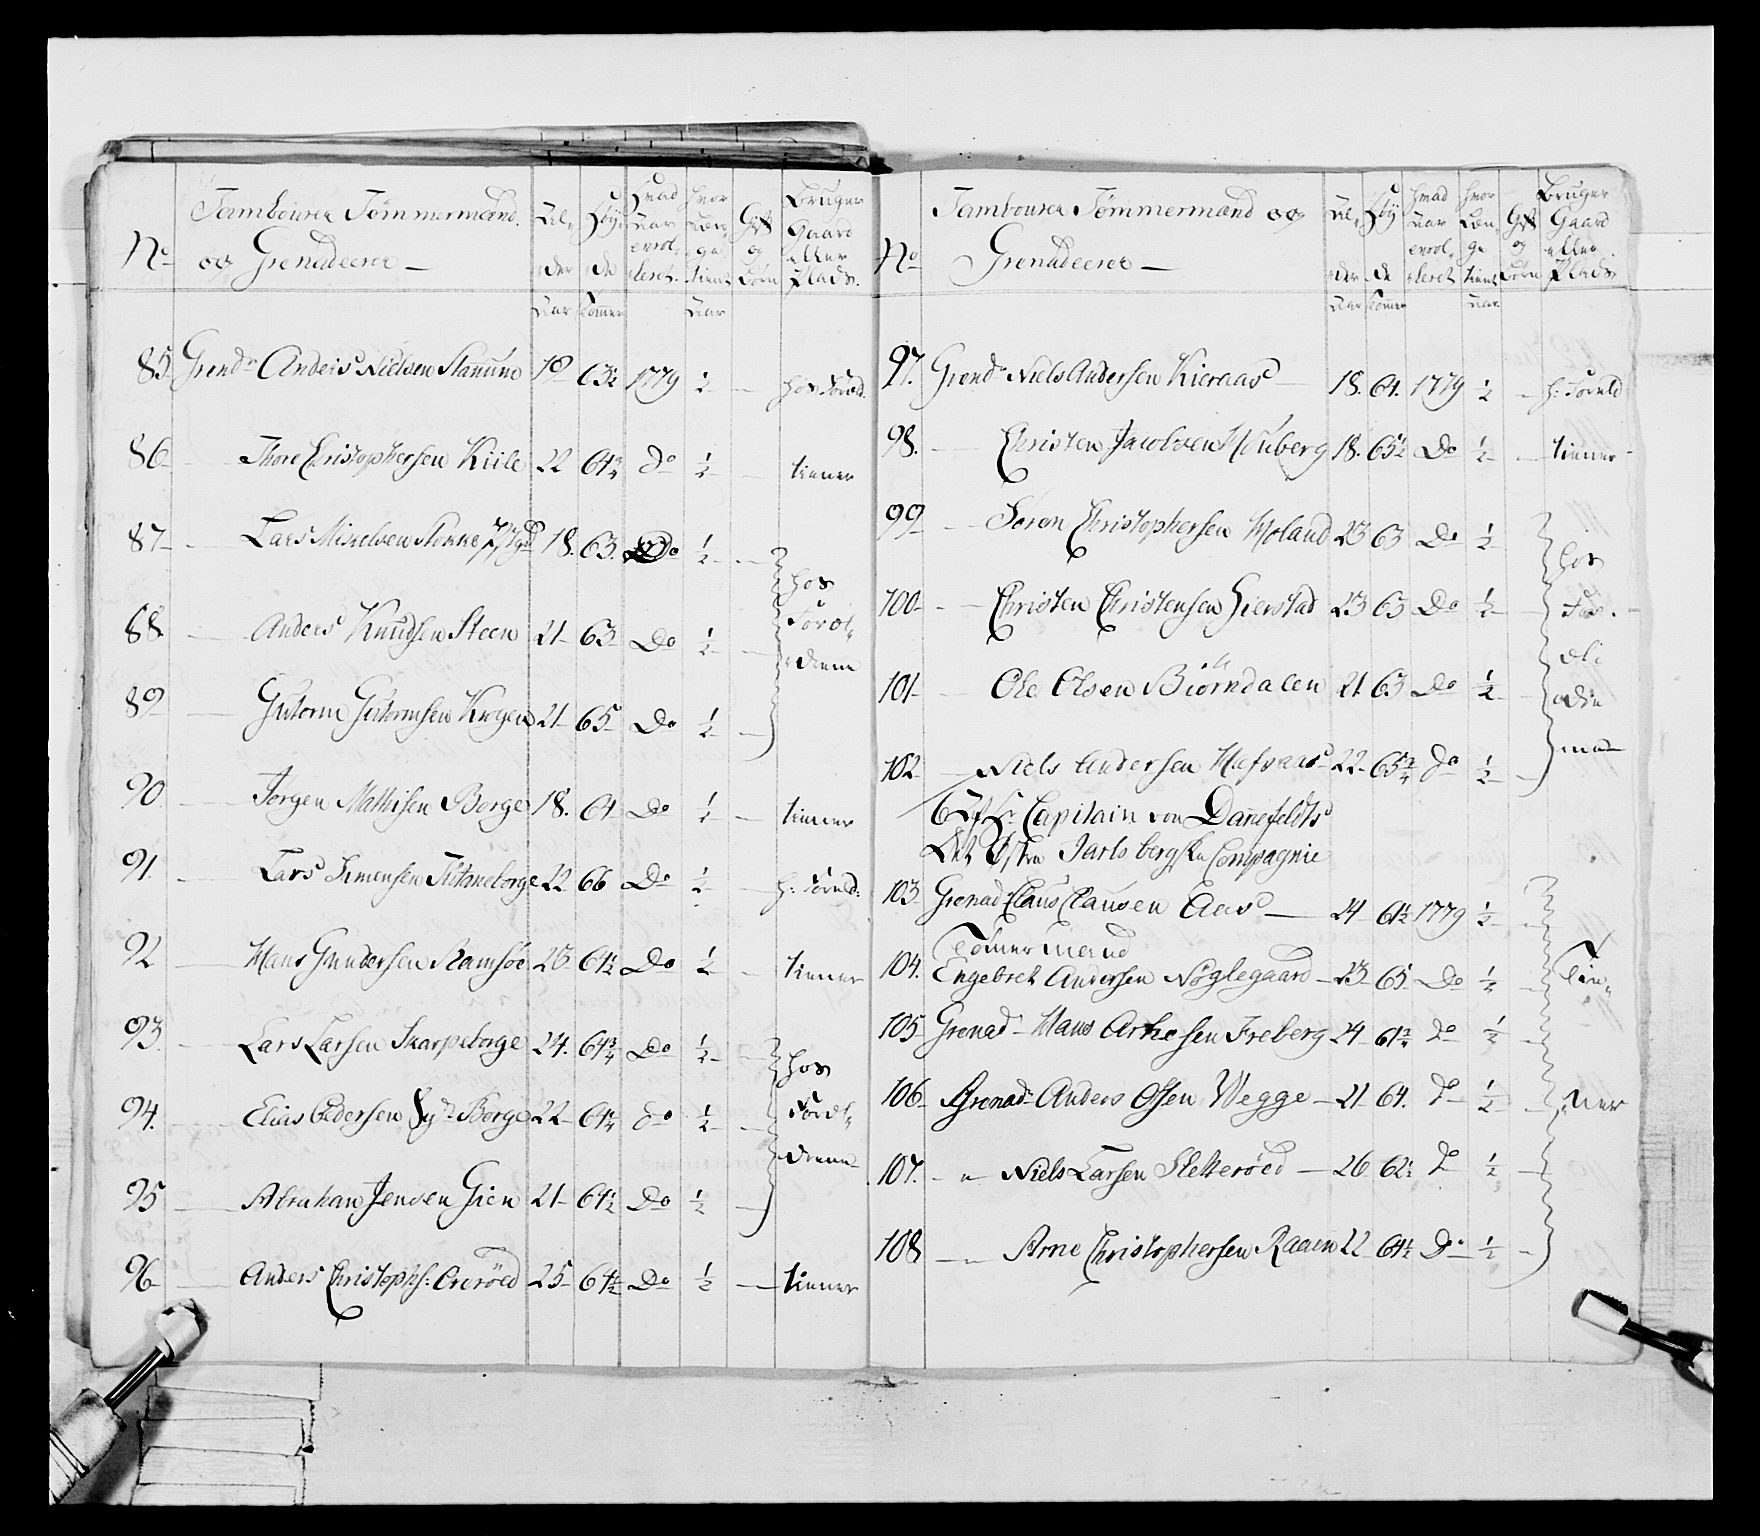 No Tambourer Tømmermænd og Grenadeerer — Al-der Aar Høyde Tommer Hvad Aar enrol-leret Hvor Læn-ge tient Aar Gift og Børn Bruger Gaard eller Plads.
85 Grendr Anders Nielsen 18 63½ 1779 ½ — hos Foreld.
86 — Thore Christophersen Kiile 22 64¾ do ½ — tiener
87 — Lars 18. 63. Do ½ —
88. — Anders Knudsen Steen 21 63 Do ½ — hos Forel-drene
89 — Gutorm Gutormsen Krogen 21 65 Do ½ —
90 — Jørgen Mathisen Borge 18. 64 Do ½ — tiener
91. — Lars Simensen 22 66 Do ½ — h: Foreld:
92 — Hans Gundersen Ramsøe 64½ Do ½ — tiener
93. — Lars Larsen Skarpeborge 24. 64¾ Do ½ — hos
94. — Elias Pedersen Borge 22 64¾ do ½ — Forel-drene
95 — Abraham Jensen Gien 21 64½ Do ½ —
96 — Anders Christophs: 25 64½ Do ½ — tiener
No Tambourer Tømmermænd og Grenadeerer — Al-der Aar Høyde Tommer Hvad Aar enrol-leret Hvor Læn-ge tient Aar Gift og Børn Bruger Gaard eller Plads.
97. Grendr Niels Andersen Kieraas 18. 64. 1779 ½ — h: Foreld
98. — Christen Jacobsen 18. 65½ Do ½ — tiener
99 — Søren Christophersen Holand 23 63 Do ½ hos
100 — Christen Christensen Hierstad 23 63 Do ½ — For-
101 — Ole Olsen Biörndalen 21 63 Do ½ —
102 — Niels Andersen Hafsaas 22 65¾ do ½ —
Capitain von Dannefeldts
Det Østre Jarlsbergske Compagnie
103. Grenad Claus Clausen Aas — 24 64½ 1779 ½ —
Tømermand
104. Engebret Andersen Nøglegaard — 23 65 Do ½ — Tie-
105 Grenad Hans Freberg 24 61¾ do ½ —
106 Grenad Anders Olsen Wegge — 21 64. do ½ — ner
107. — " — Niels Larsen Sletterøed — 26 62½ do ½ —
108 — " — Arne Christophersen Raaen 22 64½ Do ½ —